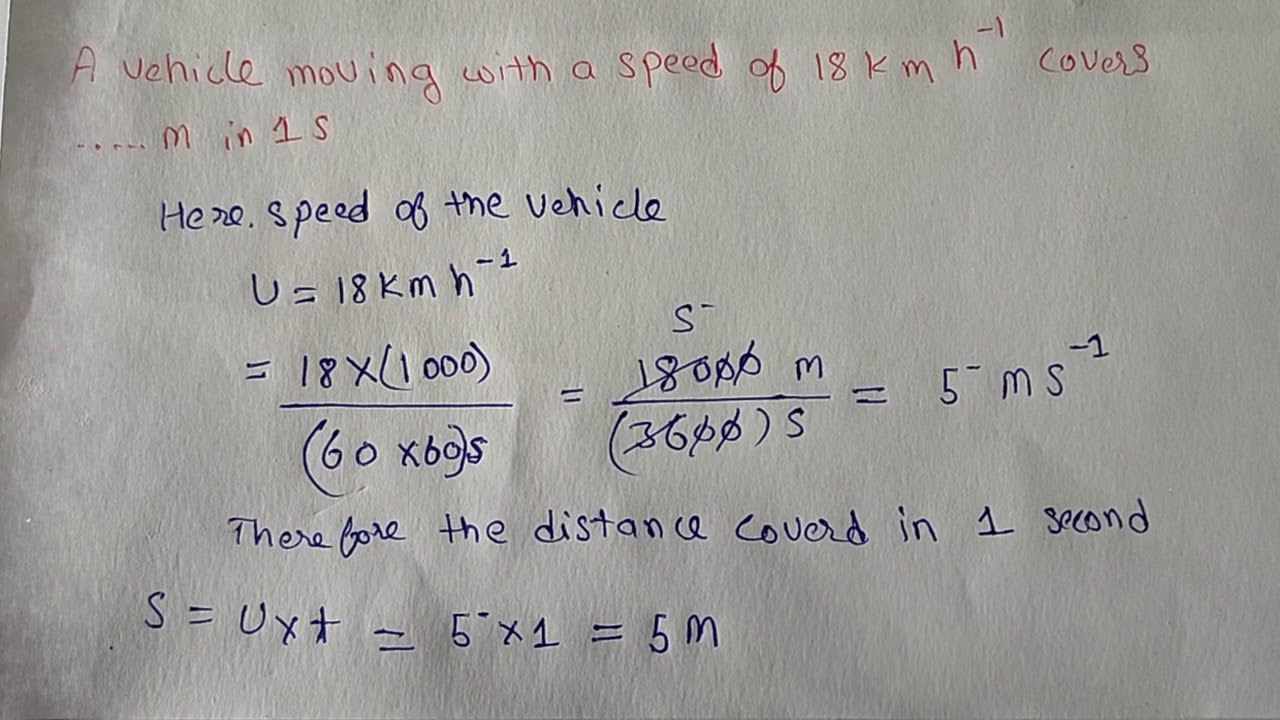 A vehicle moving with a speed of 18 km h⁻¹ covers
..... m in 1 s
Here. speed of the vehicle
U = 18 km h⁻¹
= 18×(1000) / (60 ×60)s = 18000 m / (3600) s = 5 m s⁻¹
5
Therefore the distance coverd in 1 second
S = U×t = 5×1 = 5 m